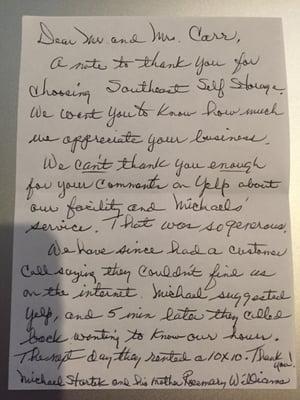 Dear Mr. and Mrs. Carr,
A note to thank you for
choosing Southeast Self Storage.
We want you to know how much
we appreciate your business.
We can't thank you enough
for your comments on Yelp about
our facility and Michaels'
service. That was so generous.
We have since had a customer
call saying they couldn't find us
on the internet. Michael suggested
Yelp, and 5 min later they called
back wanting to know our hours.
The next day they rented a 10x10. Thank you!
Michael and his mother Rosemary Williams